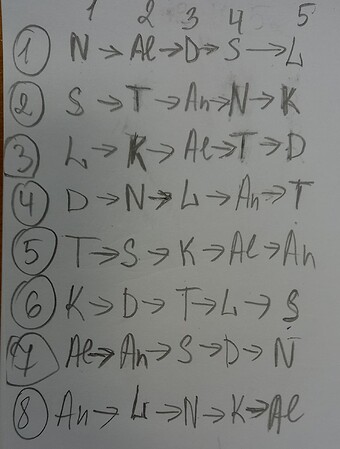 1 2 3 4 5
1 N → Al → D → S → L
2 S → T → An → N → K
3 L → K → Al → T → D
4 D → N → L → An → T
5 T → S → K → Al → An
6 K → D → T → L → S
7 Al → An → S → D → N
8 An → L → N → K → Al